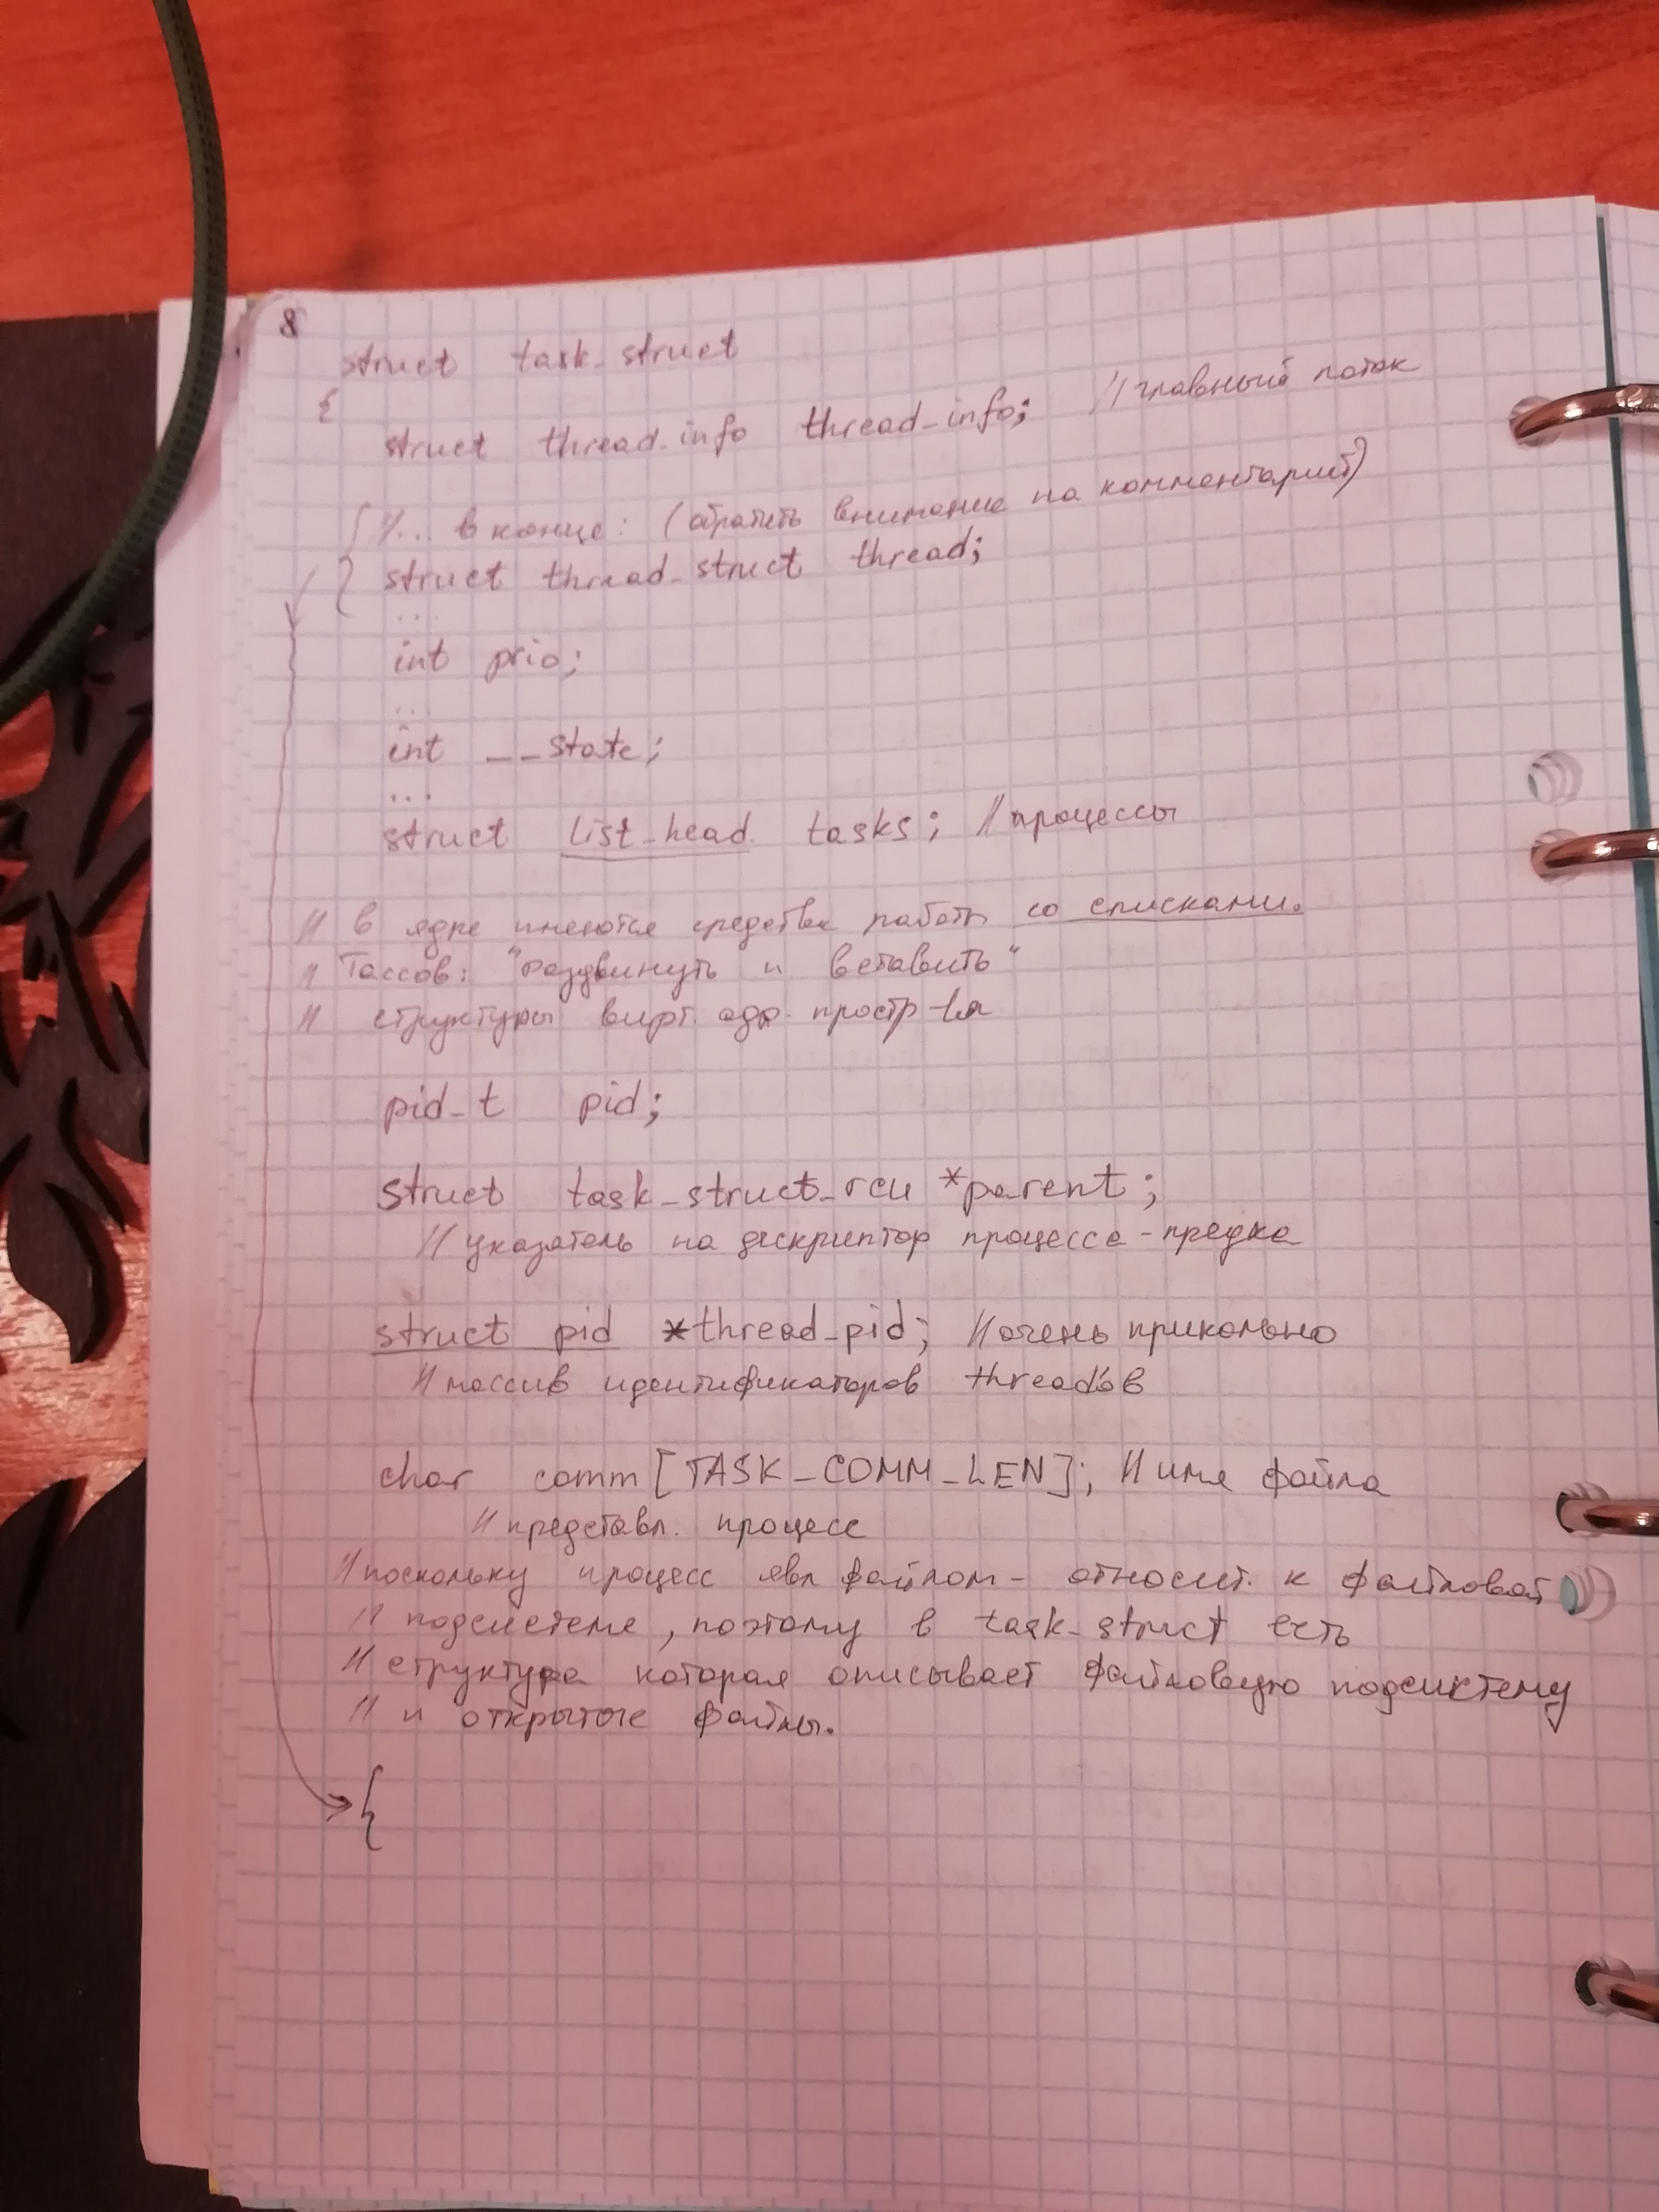 8
struct task_struct
{
struct thread_info thread_info; // главный поток
{ //... в конце: (обратить внимание на комментарий)
} struct thread_struct thread;
...
int prio;
...
int __state;
...
struct list_head tasks; // процессы
// в ядре имеются средства работы со списками.
// Тассов: "раздвинуть и вставить"
// структуры вирт. адр. простр-ва
pid_t pid;
struct task_struct_rcu *parent;
// указатель на дескриптор процесса-предка
struct pid *thread_pid; // очень прикольно
// массив идентификаторов thread'ов
char comm [TASK_COMM_LEN]; // имя файла
// представл. процесс
// поскольку процесс явл файлом - относит. к файловой
// подсистеме, поэтому в task_struct есть
// структура которая описывает файловую подсистему
// и открытые файлы.
{